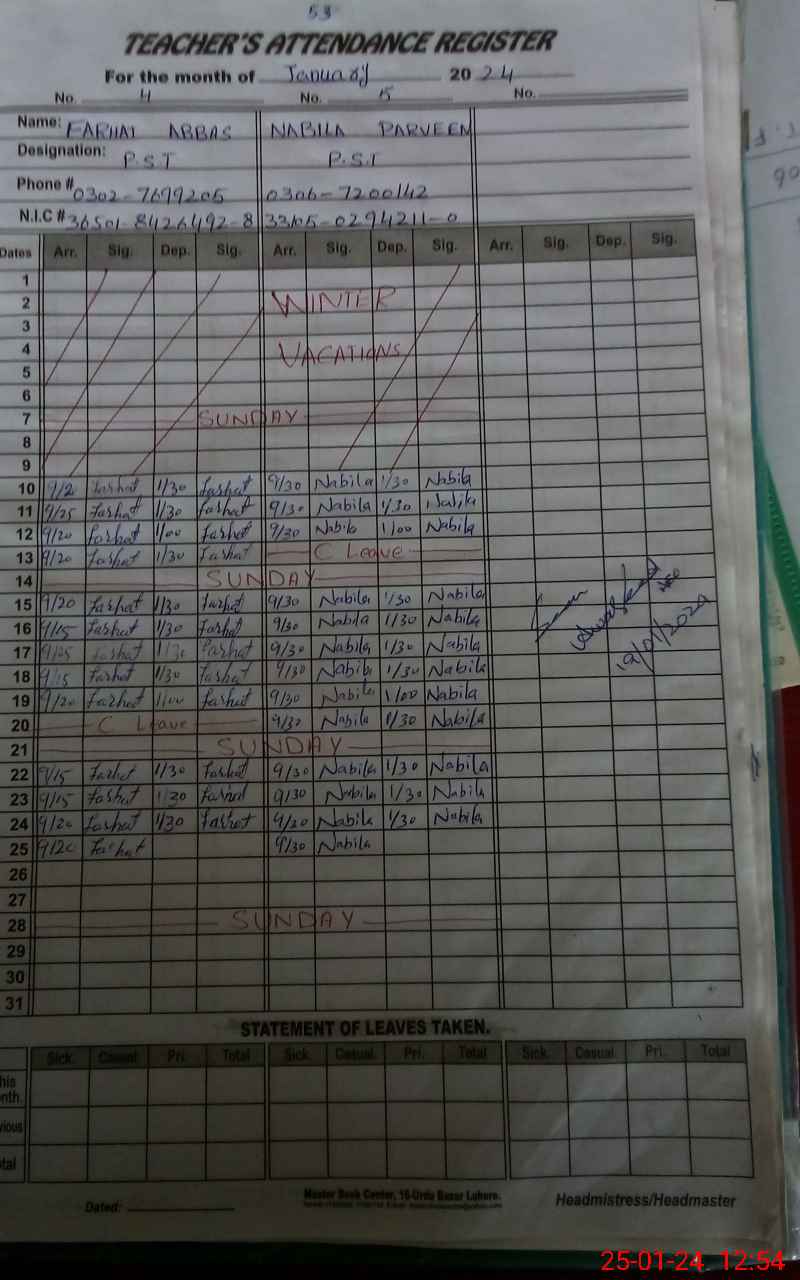 53
TEACHER'S ATTENDANCE REGISTER
For the month of January 2024
No. 4 No. 5 No.
Name: FARHAT ABBAS NABILA PARVEEN
Designation: P.S.T P.S.T
Phone # 0302-7699205 0306-7200142
N.I.C # 36501-8426492-8 33105-0294211-0
Dates Arr. Sig. Dep. Sig. Arr. Sig. Dep. Sig. Arr. Sig. Dep. Sig.
1
2 WINTER
3
4 VACATIONS
5
6
7 SUNDAY
8
9
10 9/20 Farhat 1/30 Farhat 9/30 Nabila 1/30 Nabila
11 9/25 Farhat 1/30 Farhat 9/30 Nabila 1/30 Nabila
12 9/20 Farhat 1/00 Farhat 9/30 Nabila 1/00 Nabila
13 9/20 Farhat 1/30 Farhat C Leave
14 SUNDAY
15 9/20 Farhat 1/30 Farhat 9/30 Nabila 1/30 Nabila
16 9/15 Farhat 1/30 Farhat 9/30 Nabila 1/30 Nabila
17 9/25 Farhat 1/30 Farhat 9/30 Nabila 1/30 Nabila
18 9/15 Farhat 1/30 Farhat 9/30 Nabila 1/30 Nabila
19 9/20 Farhat 1/00 Farhat 9/30 Nabila 1/00 Nabila
20 C Leave 9/30 Nabila 1/30 Nabila
21 SUNDAY
22 9/15 Farhat 1/30 Farhat 9/30 Nabila 1/30 Nabila
23 9/15 Farhat 1/30 Farhat 9/30 Nabila 1/30 Nabila
24 9/20 Farhat 1/30 Farhat 9/20 Nabila 1/30 Nabila
25 9/20 Farhat 9/30 Nabila
26
27
28 SUNDAY
29
30
31
19/01/2024
STATEMENT OF LEAVES TAKEN.
Sick. Casual Pri. Total Sick. Casual. Pri. Total Sick. Casual. Pri. Total
Dated:
Master Book Center, 16-Urdu Bazar Lahore.
Headmistress/Headmaster
25-01-24 12:54